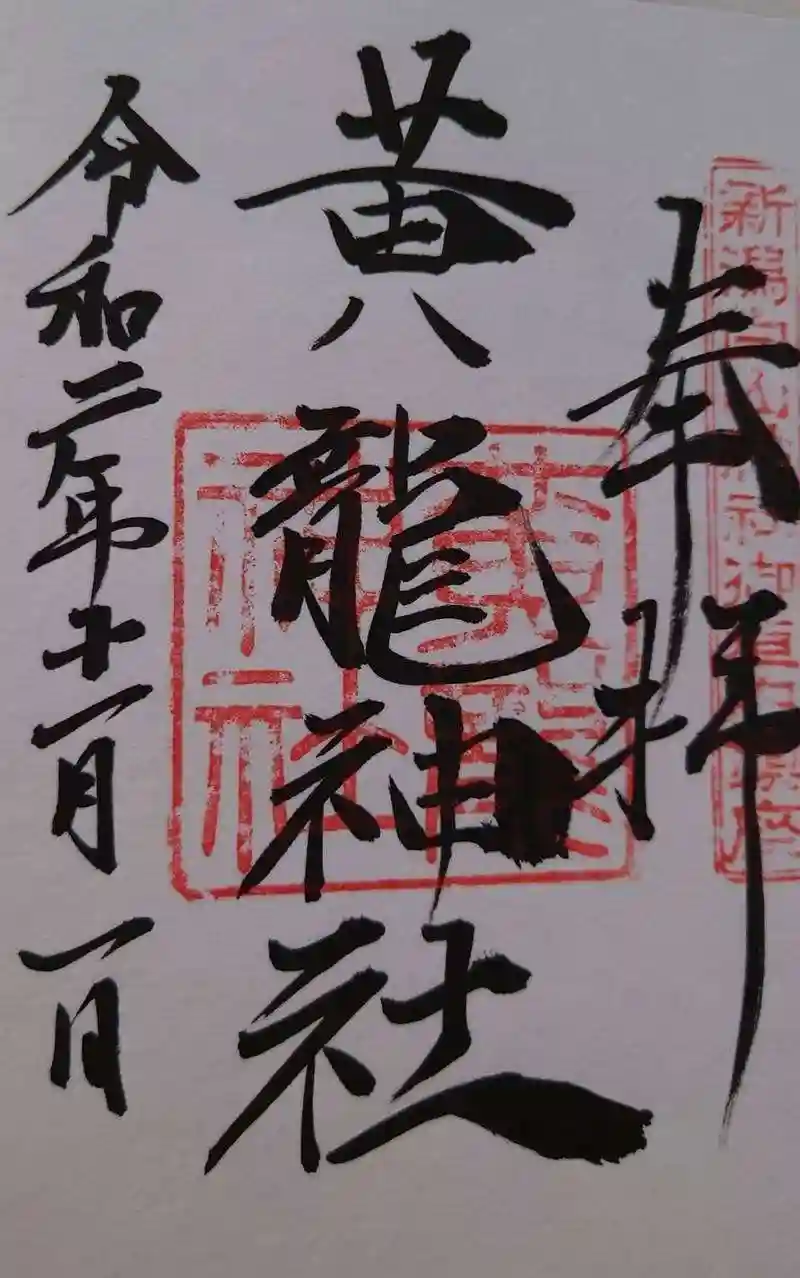 奉拝
黄龍神社
令和二年十一月一日
黄龍神社